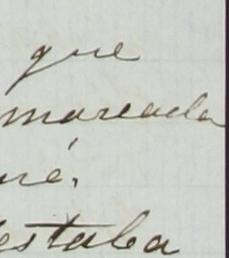 que
mareada
né.
estaba